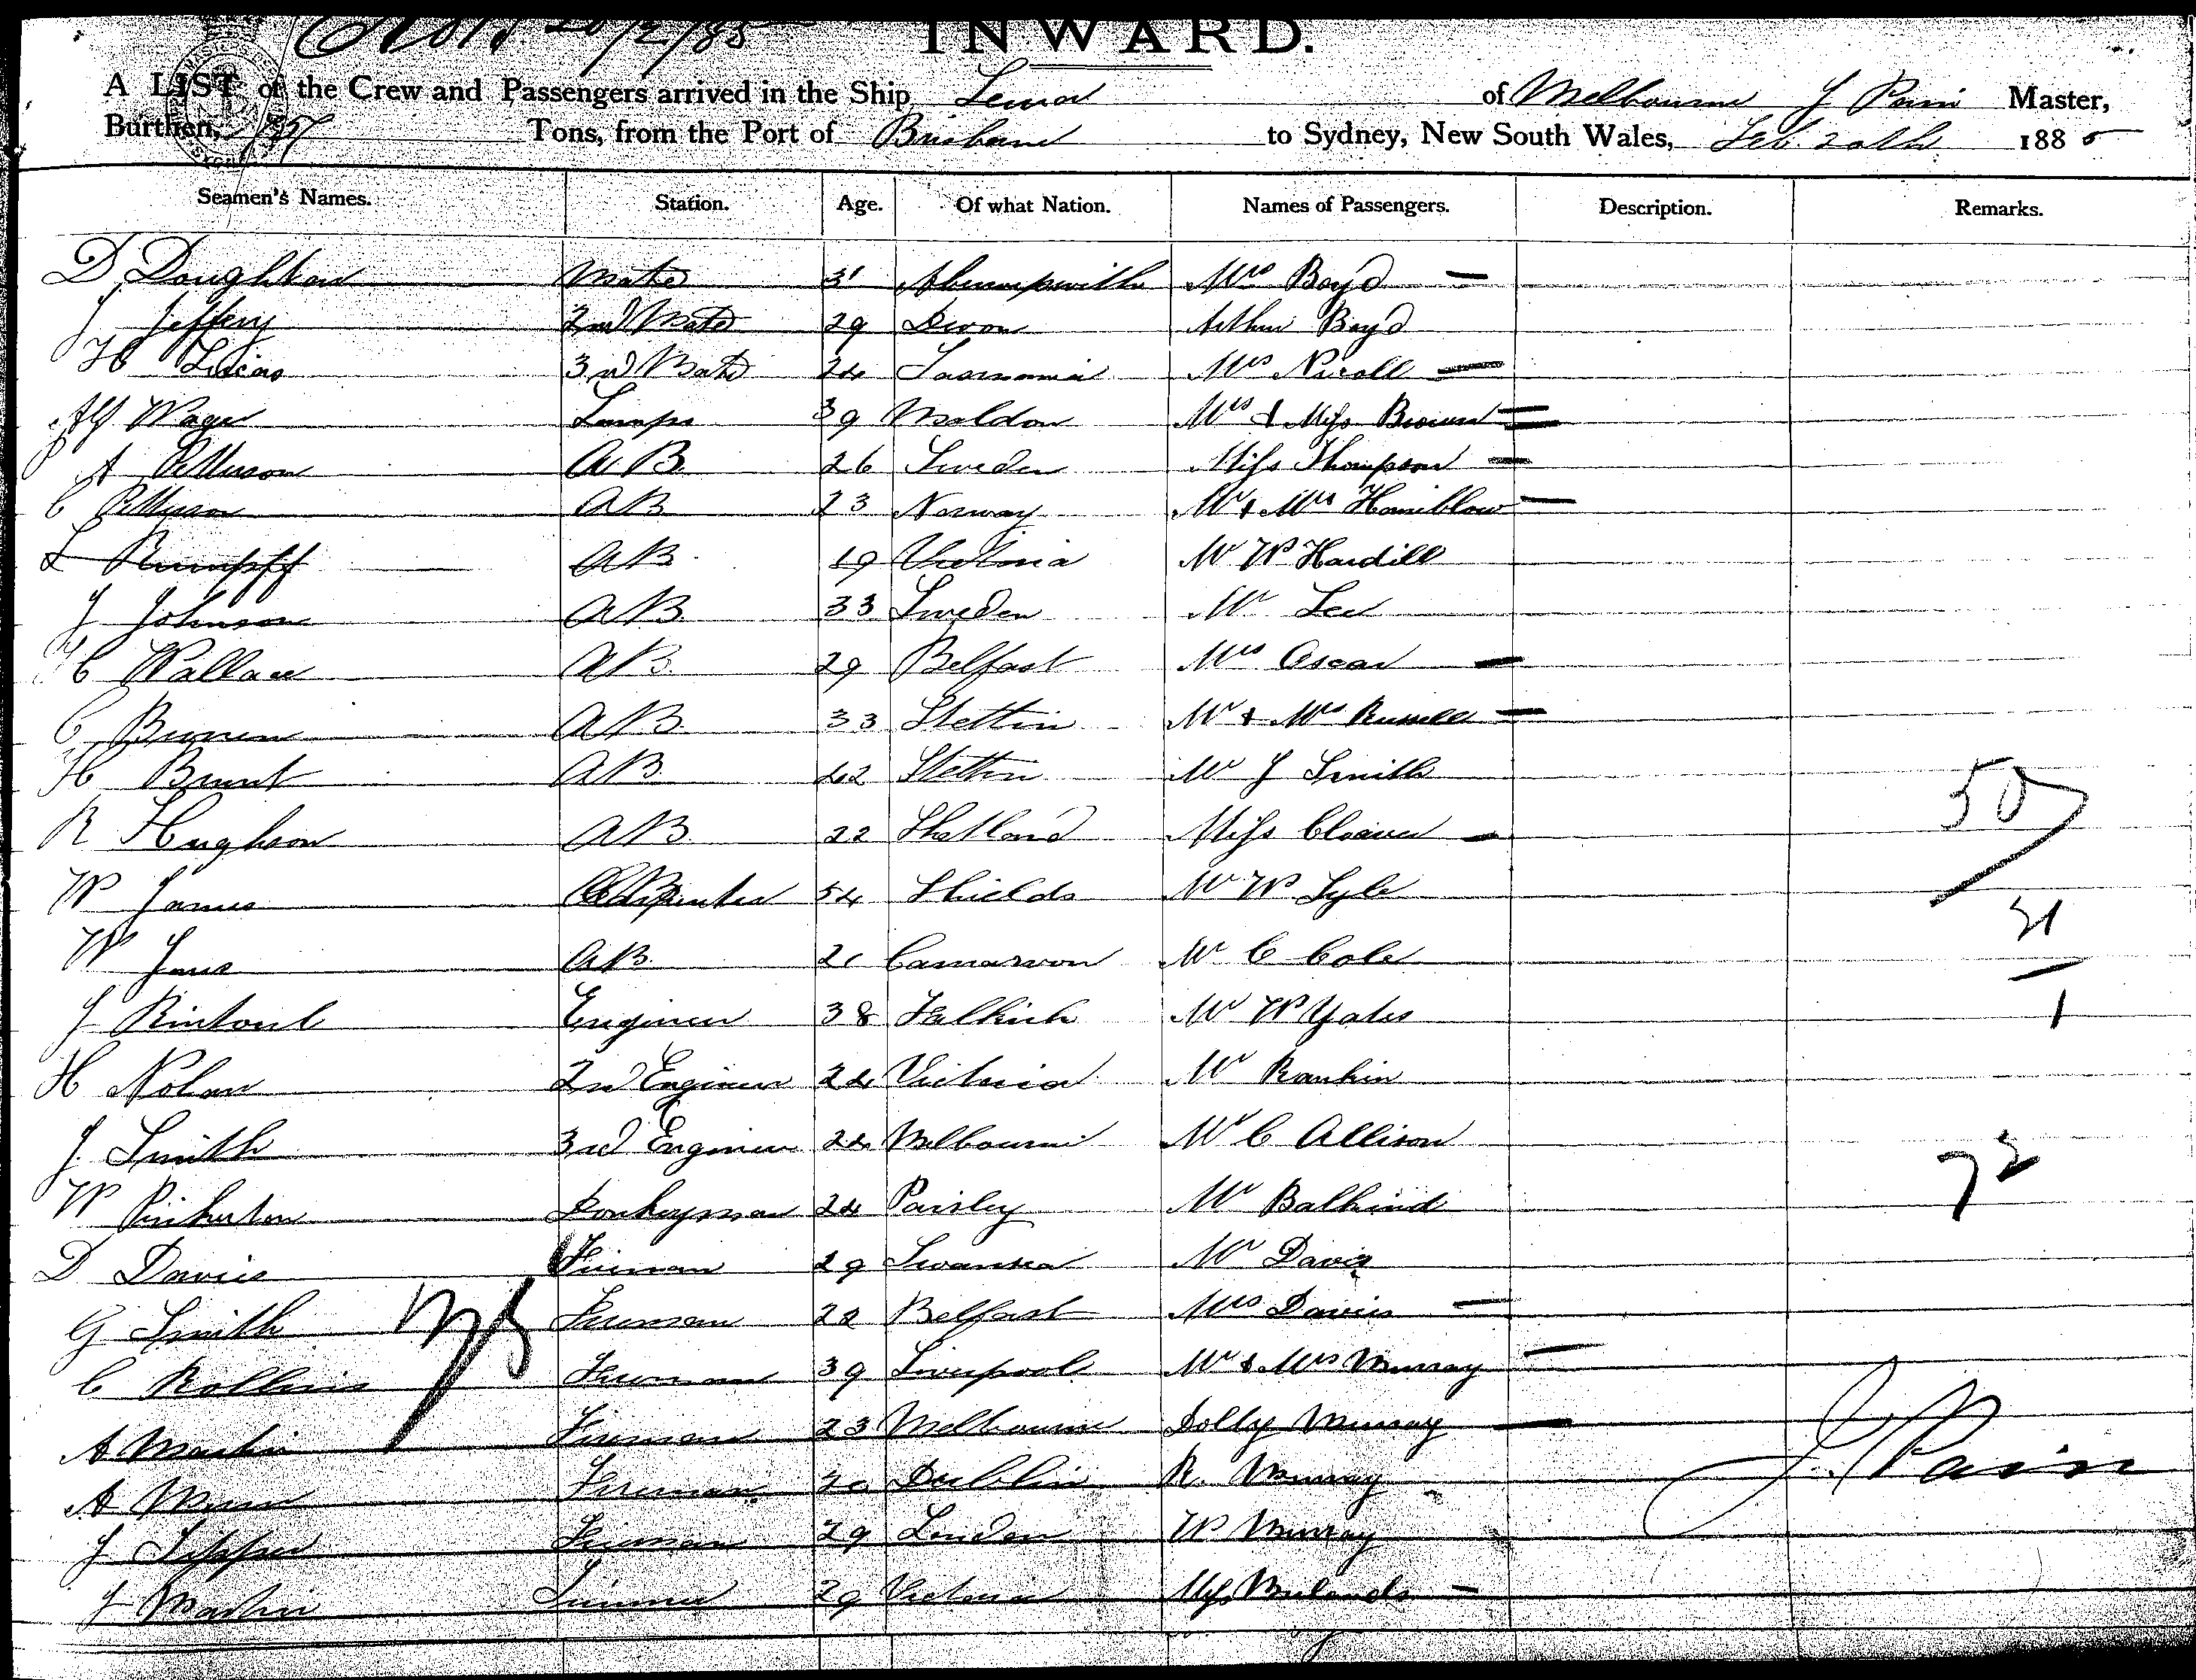 20/2/85
INWARD.
A LIST of the Crew and Passengers arrived in the Ship of Melbourne J Pain Master,
Burthen, Tons, from the Port of Brisbane to Sydney, New South Wales, Feb. 20th 1885
Seamen's Names. Station. Age. Of what Nation. Names of Passengers. Description. Remarks.
D Doughton Mate 31 Mrs Boyd —
J Jeffery 2nd Mate 29 Devon Arthur Boyd
H Lucas 3rd Mate 24 Tasmania Mrs Nicoll —
Alf Wage Lamps 39 Maldon Mrs & Miss Brown —
A Petterson AB 26 Sweden Miss Thompson —
C Petterson AB 23 Norway Mr & Mrs Hamiblow —
L Rumpff AB 19 Victoria Mr W Hardill
J Johnson AB 33 Sweden Mr Lee
C Wallace AB 29 Belfast Mrs Oscar —
C AB 33 Stettin Mr & Mrs Russell —
H Brunt AB 42 Stettin Mr J Smith
50
R Hughson AB 22 Shetland Miss —
W James Carpenter 54 Shields Mr W Lyle
21
W AB 21 Carnarvon Mr C Cole
1
J Rintoul Engineer 38 Falkirk Mr W Yates
H Nolan 2nd Engineer 24 Victoria Mr Rankin
J. Smith 3rd Engineer 24 Melbourne Mr C Allison
72
W Pinkerton Donkeyman 24 Paisley Mr Balkind
D Davies Fireman 29 Swansea Mr Davis
G Smith Fireman 22 Belfast Mrs Davies —
C Rollins Fireman 39 Liverpool Mr & Mrs Murray —
A Martin Fireman 23 Melbourne Dolly Murray —
J. Pain
A Fireman Dublin R. Murray
J Fireman 29 London W Murray
J Martin Trimmer 29 Victoria Miss —